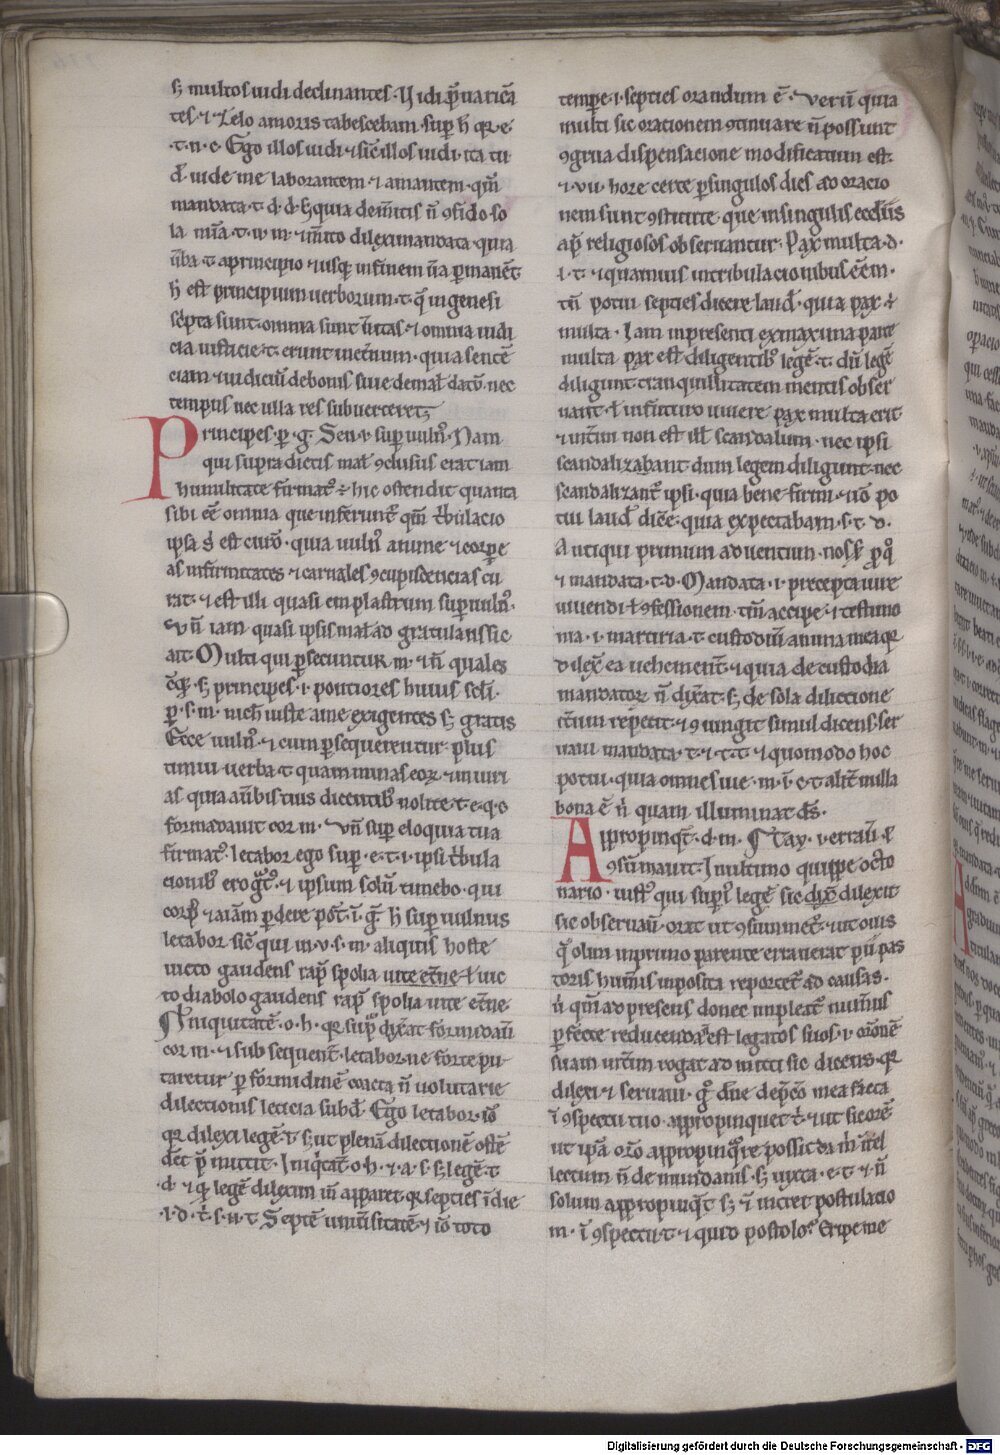 s; multos uidi declinantes. Uidi p̄uaricā
tes. ⁊ zelo amoris tabescebam. sup̄ h̄ qr̄ e.
.t. n. c. Ego illos uidi. ⁊ sic̄ illos uidi. ita tu
d̄. uide me laborantem ⁊ amantem. qm̄
mandata. t. d. d. h̄ quia de m̄itis n̄ ɔfido so
la m̄ia. t. u. m. īm̄ito dilexi mandata. quia
ūba. t. a principio ⁊ usq; in finem ūa pmanēt
h̄ est principium uerborum. t. q̄ in genesi
septa sunt. omnia sunt ūitas. ⁊ omnia iudi
cia iusticie. t. erunt inet̄num. quia senten̄
ciam. ⁊ iudiciū de bonis siue de mal̄ datū. nec
tempus nec ulla res subuerteret;
Principes. p̄. g. Sen. v. sup̄ uuln̄. Nam
qui supra dictis mal̄ ɔclusus erat iam
humilitate firmat᷒ ÷ hic ostendit quanta
sibi eē omnia que inferunt᷒ qm̄ t̄bulacio
ipsa s; est curō. quia uuln̄ anime ⁊ corp̄e
as infirmitates ⁊ carnales ɔcupiscencias cu
rat. ⁊ est illi quasi emplastrum sup̄ uuln᷒.
Vn̄ iam quasi ipsis mal̄ ad gratulans sic
ait. Multi qui p̄secuntur m. ⁊ n̄ quales
cūq;. s; principes. i. potiores huius sc̄li.
p̄. s. m. nich̄ iuste a me exigentes s; gratis
Ecce uuln᷒. ⁊ cum p̄sequerentur. plus
timui uerba. t. quam minas eoꝝ. ⁊ iniuri
as. quia a ūbis tuis dicentib᷒ nolite. t. e. q. o
formidauit cor m. Vn̄ sup̄ eloquia tua
firmat᷒. letabor ego sup̄. e. t. i. ipsi t̄bula
cionib᷒ erogat᷒. ⁊ ipsum solū timebo. qui
corp᷒ ⁊ aīam p̄dere pot̄. ī. g̅. h̄ sup̄ uulnus
letabor sic̄ qui in. v. s. m. aliquis hoste
uicto gaudens rap̄ spolia uite et̄ne. l̄ uic
to diabolo gaudens rap̄ spolia uite et̄ne.
¶ Iniquitatē. o. h. qr̄ sup̄ᵃ dix̄at formidaū
cor m. ⁊ subsequent̄. letabor. ne forte pu-
taretur p̄ formidinē coacta n̄ uolutarie
dilectionis leticia subd̄. Ego letabor. iō
qr̄ dilexi legē. t. s; ut plenā dilectionē ostē
deret p̄mittit. Iniq̄tat̄. o. h. ⁊. a. s. s; legē. t
.d. ⁊ q̄ legē dilexim̄ in̄ apparet. qr̄ septies ī die
.l. d. t̄. s. u. t. Septē uniūsitatē. ⁊ iō toto
tempe. i. septies orandum ē. Verū quia
multi sic orationem ɔtinuare n̄ possunt
ɔgrua dispensacione modificatum est.
⁊ vii. hore certe p̄ singulos dies ad oracio
nem sunt ɔstitute. que in singulis ecclīis
ap̄ religiosos obseruantur. Pax multa. d.
.l. t. ⁊ iquamuis in tribulacionibus eēm.
tn̄ potui septies dicere laud̄. quia pax. ÷
multa. Iam in presenti ex maxima parte
multa pax est diligentib᷒ legē. t. dū legē
diligunt. tranquillitatem mentis obser
uant. l̄ in futuro uiuere pax multa erit
⁊ uit̄im non est ill᷒ scandalum. nec ipsi
scandalizabant dum legem diligunt. nec
scandalizant᷒ ipsi. quia bene firmi. ⁊ iō po
tui laud̄ dic̄e. quia expectabam. s. t. d.
Antiqui primum aduentum. nos s;. p̄q̄
⁊ mandata. t. d. Mandata. i. precepta iure
uiuendi. l̄ ɔfessionem. tm̄ accipe. ⁊ testimo
nia. i. martiria. t. custodiuī anima mea. qr̄
dilex̄ ea uehement̄. ⁊ iquia de custodia
mandatoꝝ n̄ dix̄at. s; de sola dilictione
it̄um repetit. ⁊ ɔiungit simul dicens. ser
uaui mandata. t. ⁊. t. t. ⁊ quomodo hoc
potui. quia omnes uie. m. ī. c. t. alit̄ in illa
bona ē n̄ quam illuminat d̄s.
Appropinq̄t. d. m. ¶ Tay. v. erraū. ē
ɔsūmauit. In ultimo quippe octo
nario. iust᷒ qui sup̄ legē sic dixit dilexit
sic obseruaū. orat ut ɔsummet᷒. ⁊ ut ouis
q̄ olim in primo parente errauerat pīi pas
toris hum̄is inposita reportet᷒ ad caulas.
n̄ qm̄ ad presens donec impleat᷒ num̄us
p̄fecte reducenda est legatos suos. i. orōnē
suam uit̄im rogat ad mitti sic dicens. qr̄
dilexi ⁊ seruaui. g̊ dn̄e dep̄co mea facta
ī ɔspectu tuo. appropinquet t̄. ⁊ ut sic orē
ut ip̄a or̄o appropinq̄re possit da m̄ intel
lectum n̄ de mundanis. s; iuxta. e. t. ⁊ n̄
solum appropinq̄t s; ⁊ intret postulacio
m. ī ɔspectu. t. ⁊ quid postolo᷒. Eripe me
Digitalisierung gefördert durch die Deutsche Forschungsgemeinschaft - DFG